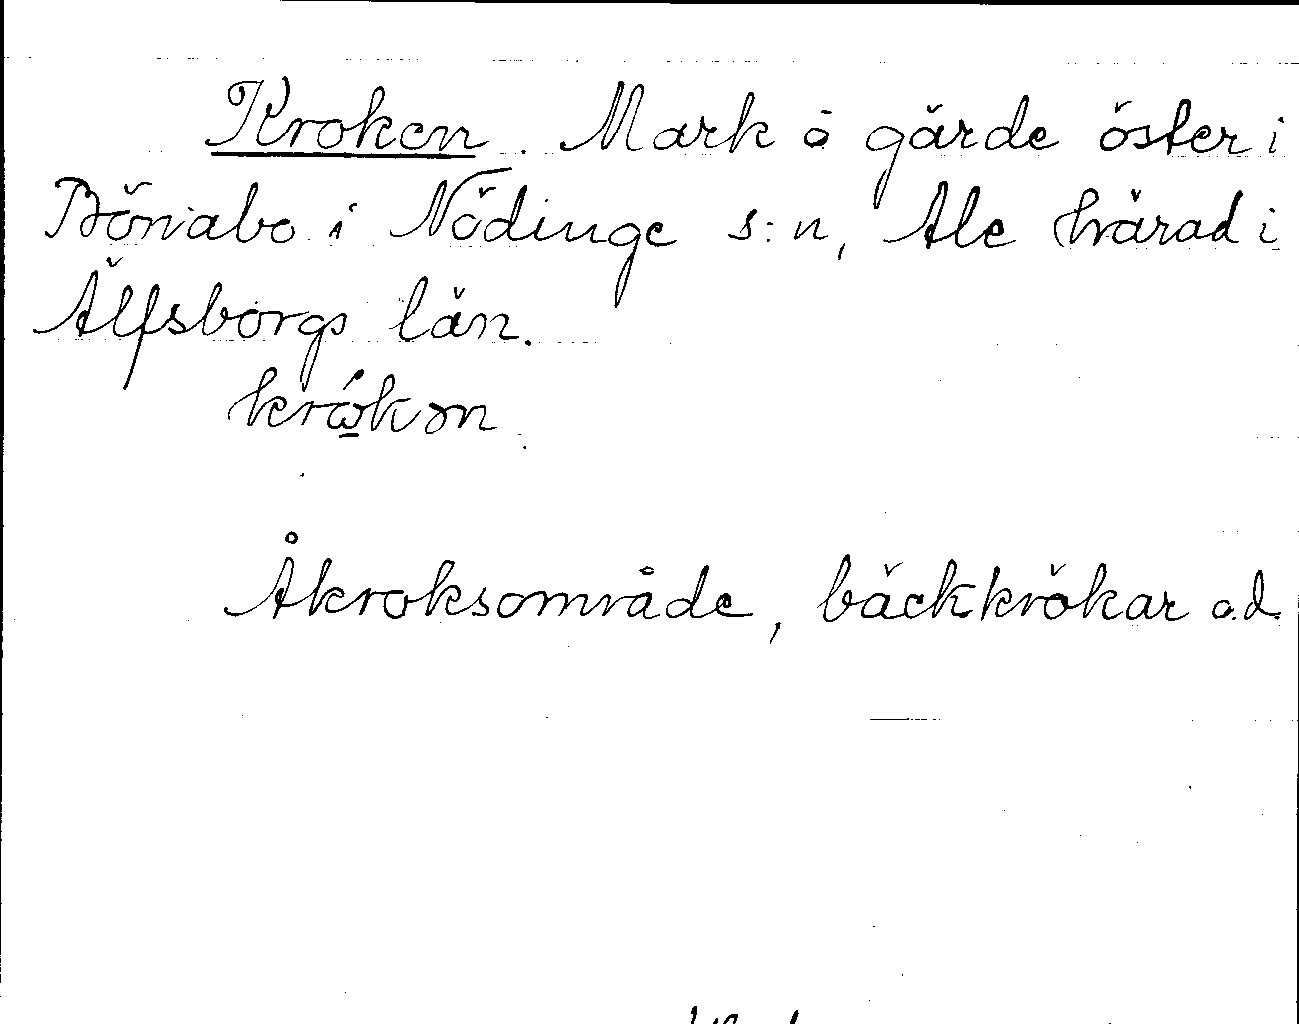 Kroken. Mark å gärde öster i
Böniabo i Nödinge s:n, Ale härad i
Älfsborgs län.
Åkroksområde, bäckkrökar o.d.